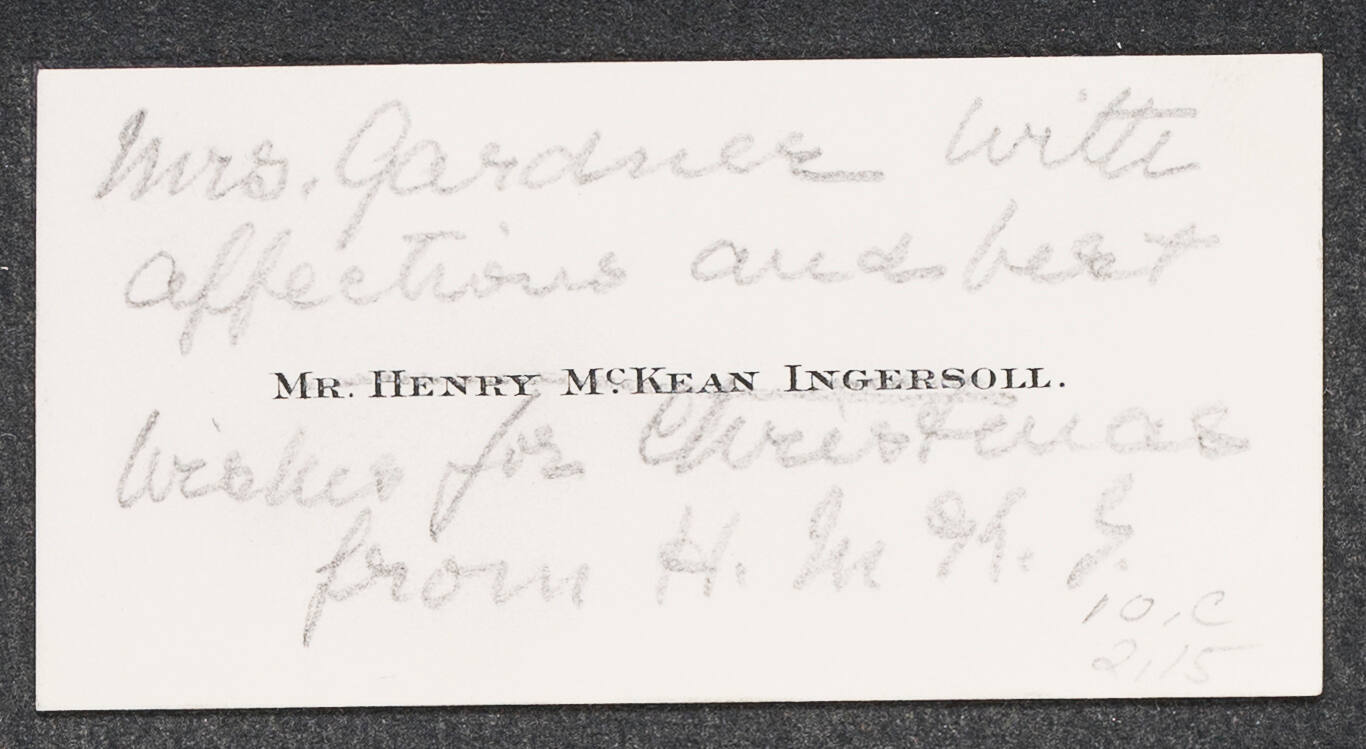 Mrs. Gardner with
affections and best
Mr. Henry McKean Ingersoll.
wishes for Christmas
from H. McK. I.
10.C
2.15